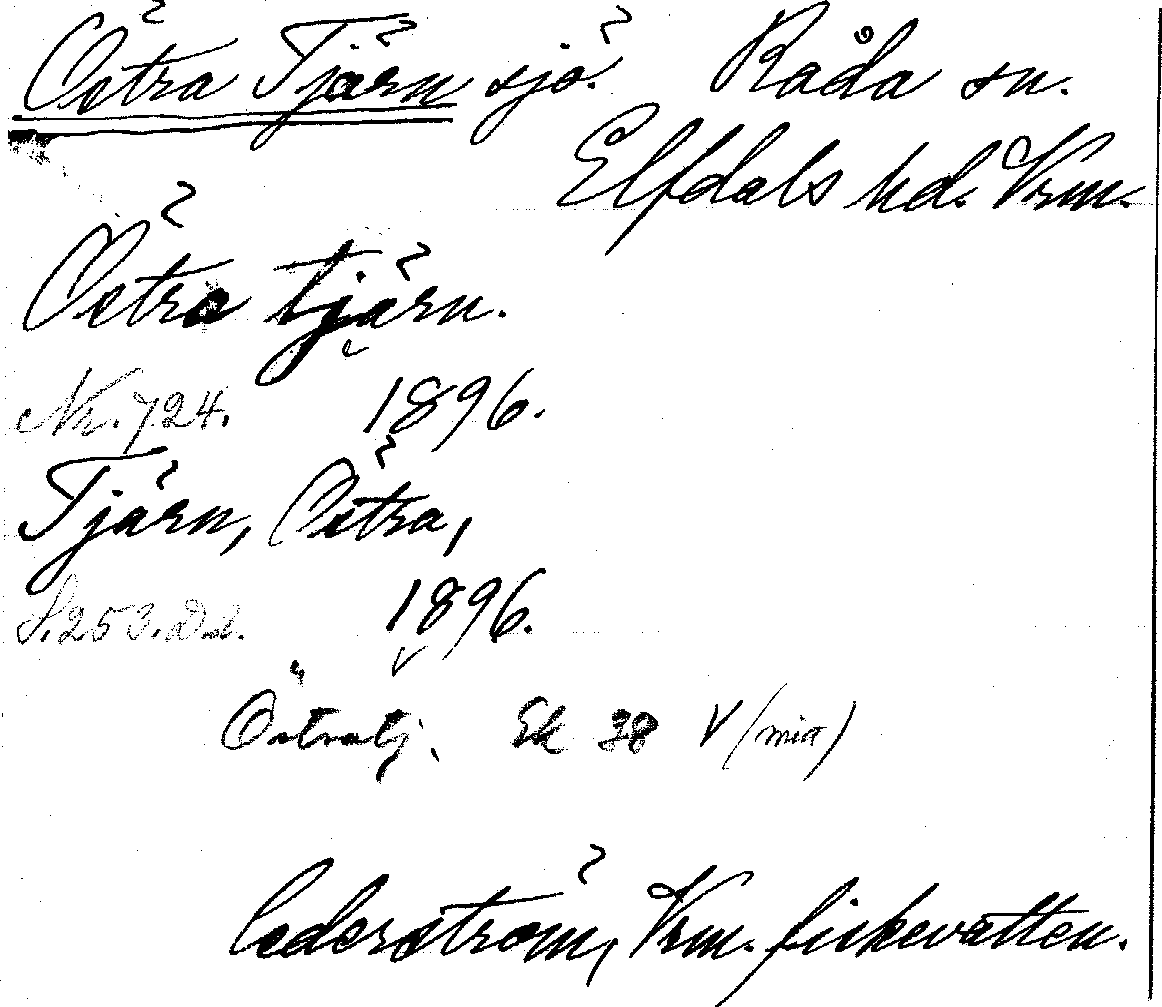 Östra Tjärn sjö. Råda sn.
Elfdals hd. Vrm.
Östra tjärn.
Nr. 724. 1896.
Tjärn, Östra,
S. 253. 1896.
Östratj. Ek 38 V (mia)
Cederström, Vrm. fiskevatten.